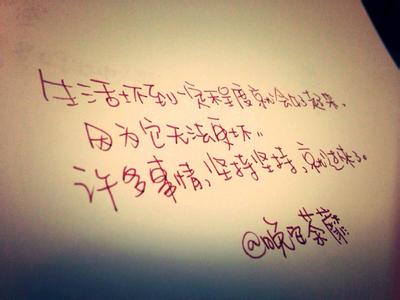 生活坏到一定程度就会好起来，
因为它无法更坏。
许多事情，坚持坚持，就过来了。
@晚安